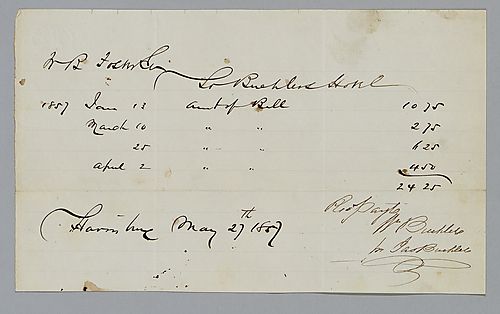 W B Foster Jr
To Buehlers Hotel
1857 Jan 13 amt of Bill 10 75
March 10 " " 2 75
25 " " 6 25
April 2 " " 4 50
24 25
Harrisburg May 27th 1857
Recd payt
Wm Buehler
for Jac Buehler